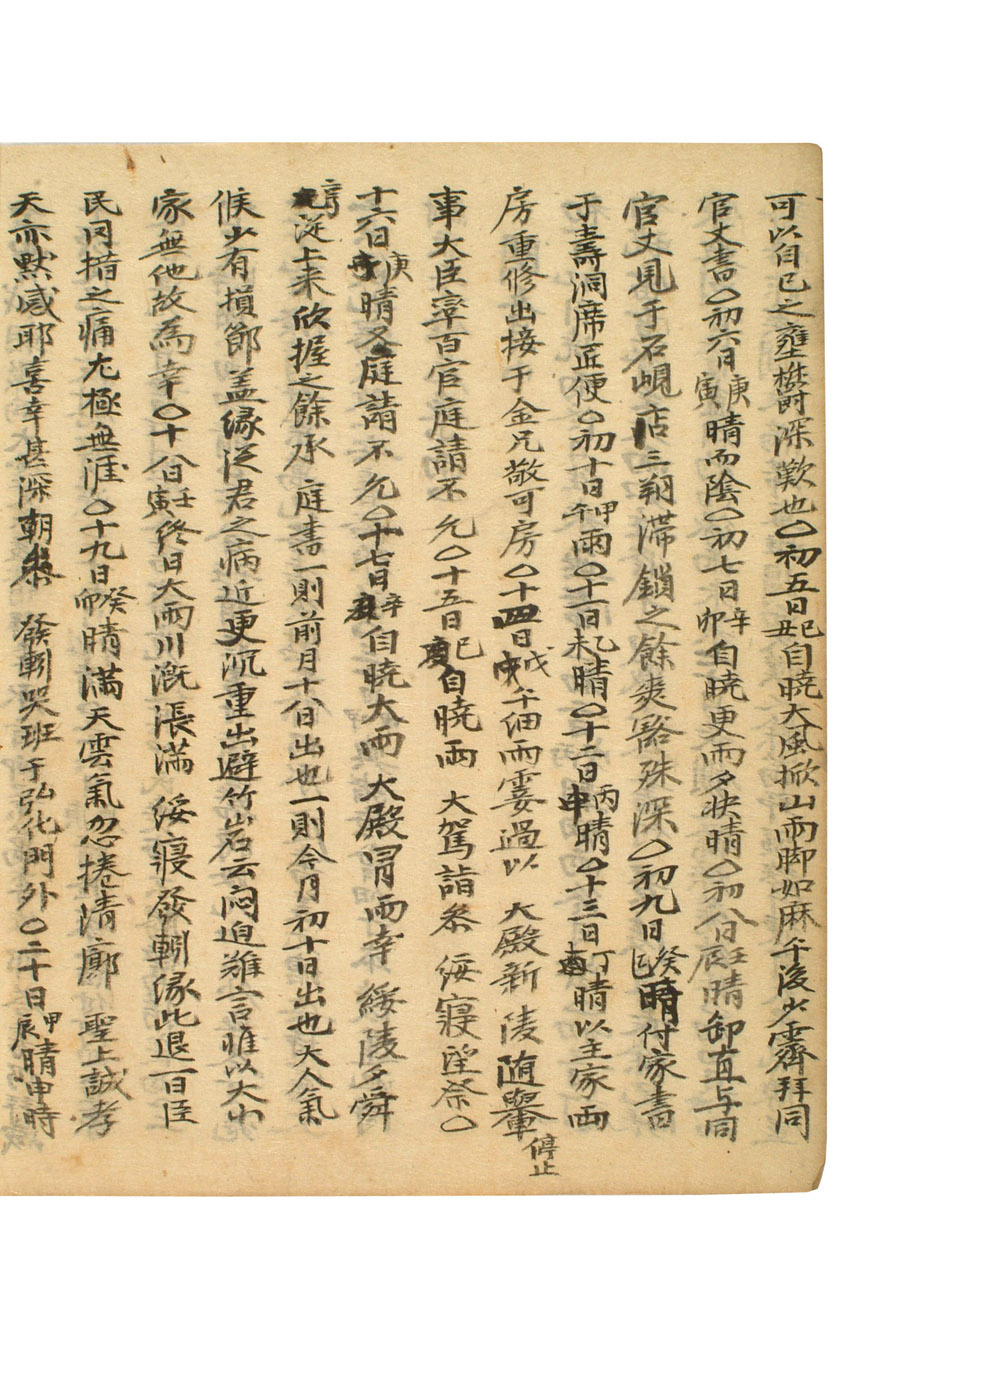 可以自已之壅欝深歎也○初五日己丑自曉大風掀山雨脚如麻午後少霽拜同
官丈書○初六日庚寅晴而陰○初七日辛卯自曉更雨夕快晴○初八日壬辰晴卸直与同
官丈見于石峴店三朔滯鎖之餘爽豁殊深○初九日癸巳晴付家書四
于壽洞席匠便○初十日甲午雨○十一日乙未晴○十二日丙申晴○十三日丁酉晴以主家雨
房重修出接于金兄敬可房○十四日戊戌午細雨霎過以 大殿新陵随轝停止
事大臣率百官庭請不允○十五日己亥自曉雨 大駕詣參 綏寢望祭○
十六日庚子晴又庭請不允○十七日辛丑自曉大雨 大殿冒雨幸 綏陵夕舜
亨從上來欣握之餘承 庭書一則前月十八日出也一則今月初十日出也大人氣
候少有損節盖緣從君之病近更沉重出避竹岩云悶迫難言惟以大小
家無他故爲幸○十八日壬寅終日大雨川漑漲滿 綏寢發靷緣此退一日臣
民罔措之痛尤極無涯○十九日癸卯晴滿天雲氣忽捲清廓 聖上誠孝
天亦默感耶喜幸甚深朝參 發靷哭班于弘化門外○二十日甲辰晴申時